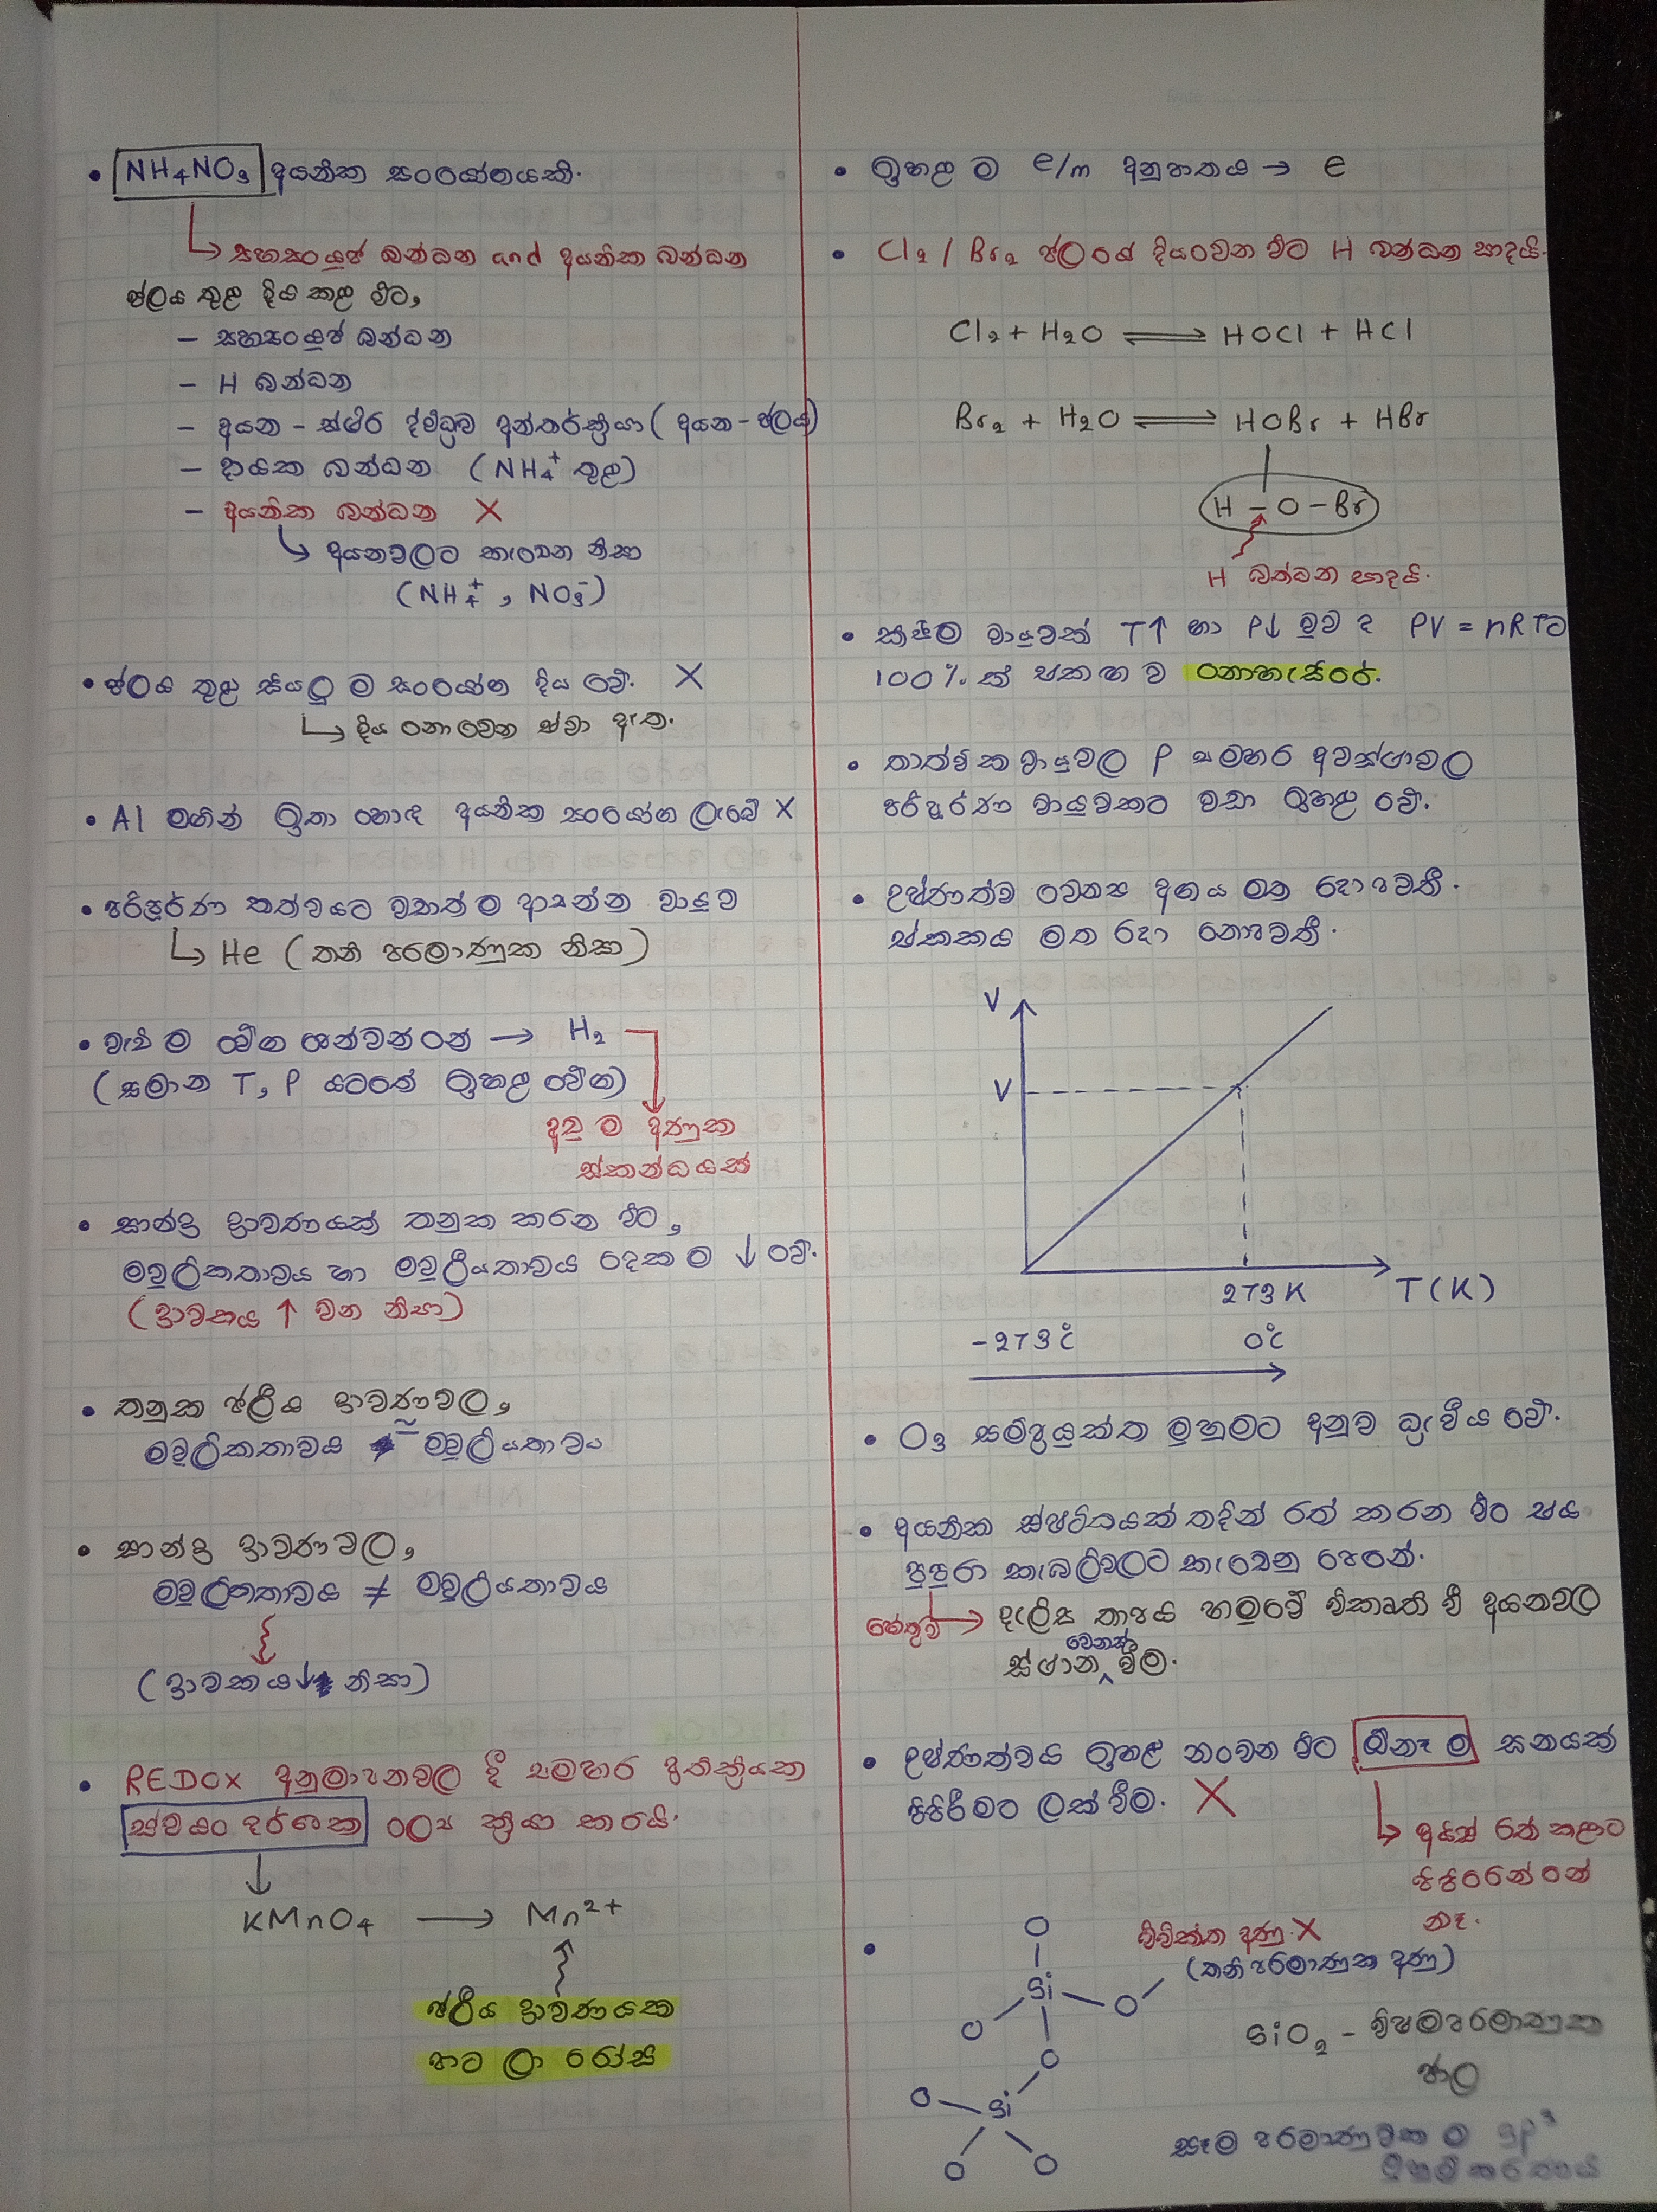 • NH₄NO₃ අයනික සංයෝගයකි.
↳ සහසංයුජ බන්ධන and අයනික බන්ධන
ජලය තුළ දිය කළ විට,
– සහසංයුජ බන්ධන
– H බන්ධන
– අයන - ස්ථිර ද්විධ්‍රැව අන්තර්ක්‍රියා (අයන - ජලය)
– දායක බන්ධන (NH₄⁺ තුළ)
– අයනික බන්ධන X
↳ අයනවලට කැඩෙන නිසා
(NH₄⁺, NO₃⁻)
• ජලය තුළ සියලු ම සංයෝග දිය වේ. X
↳ දිය නොවෙන ඒවා ඇත.
• Al මගින් ඉතා හොඳ අයනික සංයෝග ලැබේ X
• පරිපූර්ණ තත්වයට වඩාත් ම ආසන්න වායුව
↳ He (තනි පරමාණුක නිසා)
• වැඩි ම වේග ගන්වන්නේ → H₂
(සමාන T, P යටතේ ඉහළ වේග)
අඩු ම අණුක
ස්කන්ධයක්
• සාන්ද්‍ර ද්‍රාවණයක් තනුක කරන විට,
මවුලිකතාවය හා මවුලීයතාවය දෙක ම ↓ වේ.
(ද්‍රාවකය ↑ වන නිසා)
• තනුක ජලීය ද්‍රාවණවල,
මවුලිකතාවය ≃ මවුලීයතාවය
• සාන්ද්‍ර ද්‍රාවණවල,
මවුලිකතාවය ≠ මවුලීයතාවය
(ද්‍රාවකය↓ නිසා)
• REDOX අනුමාපනවල දී සමහර ප්‍රතික්‍රියක
ස්වයං දර්ශක ලෙස ක්‍රියා කරයි.
↓
KMnO₄ → Mn²⁺
ජලීය ද්‍රාවණයක
හට ලා රෝස
• ඉහළ ම e/m අනුපාතය → e
• Cl₂ / Br₂ ජලයේ දියවෙන විට H බන්ධන සාදයි.
Cl₂ + H₂O ⇌ HOCl + HCl
Br₂ + H₂O ⇌ HOBr + HBr
H – O – Br
H බන්ධන සාදයි.
• කුඩා වායුවක් T↑ හා P↓ වුව ද PV = nRT ට
100% ක් එකඟ ව නොහැසිරේ.
• තාත්වික වායුවල P සමහර අවස්ථාවල
පරිපූර්ණ වායුවකට වඩා ඉහළ වේ.
• උෂ්ණත්ව වෙනස අගය මත රඳා පවතී.
ඒකකය මත රඳා නොපවතී.
V
V
273 K T(K)
-273°C 0°C
• O₃ සම්ප්‍රයුක්ත මුහුමට අනුව ධ්‍රැවීය වේ.
• අයනික ස්ඵටිකයක් තදින් රත් කරන විට එය
පුපුරා කැබලිවලට කැඩෙනු පෙනේ.
හේතුව → දැලිස තාපය හමුවේ විකෘති වී අයනවල
ස්ථාන වෙනස් වීම.
• උෂ්ණත්වය ඉහළ නංවන විට ඕනෑ ම ඝනයක්
පිපිරීමට ලක් වීම. X
↳ අයිස් රත් කළාට
පිපිරෙන්නේ
නෑ.
•
O
Si
O
O
O
Si
O
O
O
විවික්ත අණු X
(තනි පරමාණුක අණු)
SiO₂ – විෂමපරමාණුක
ජාල
සෑම පරමාණුවක ම sp³
මුහුම්කරණය